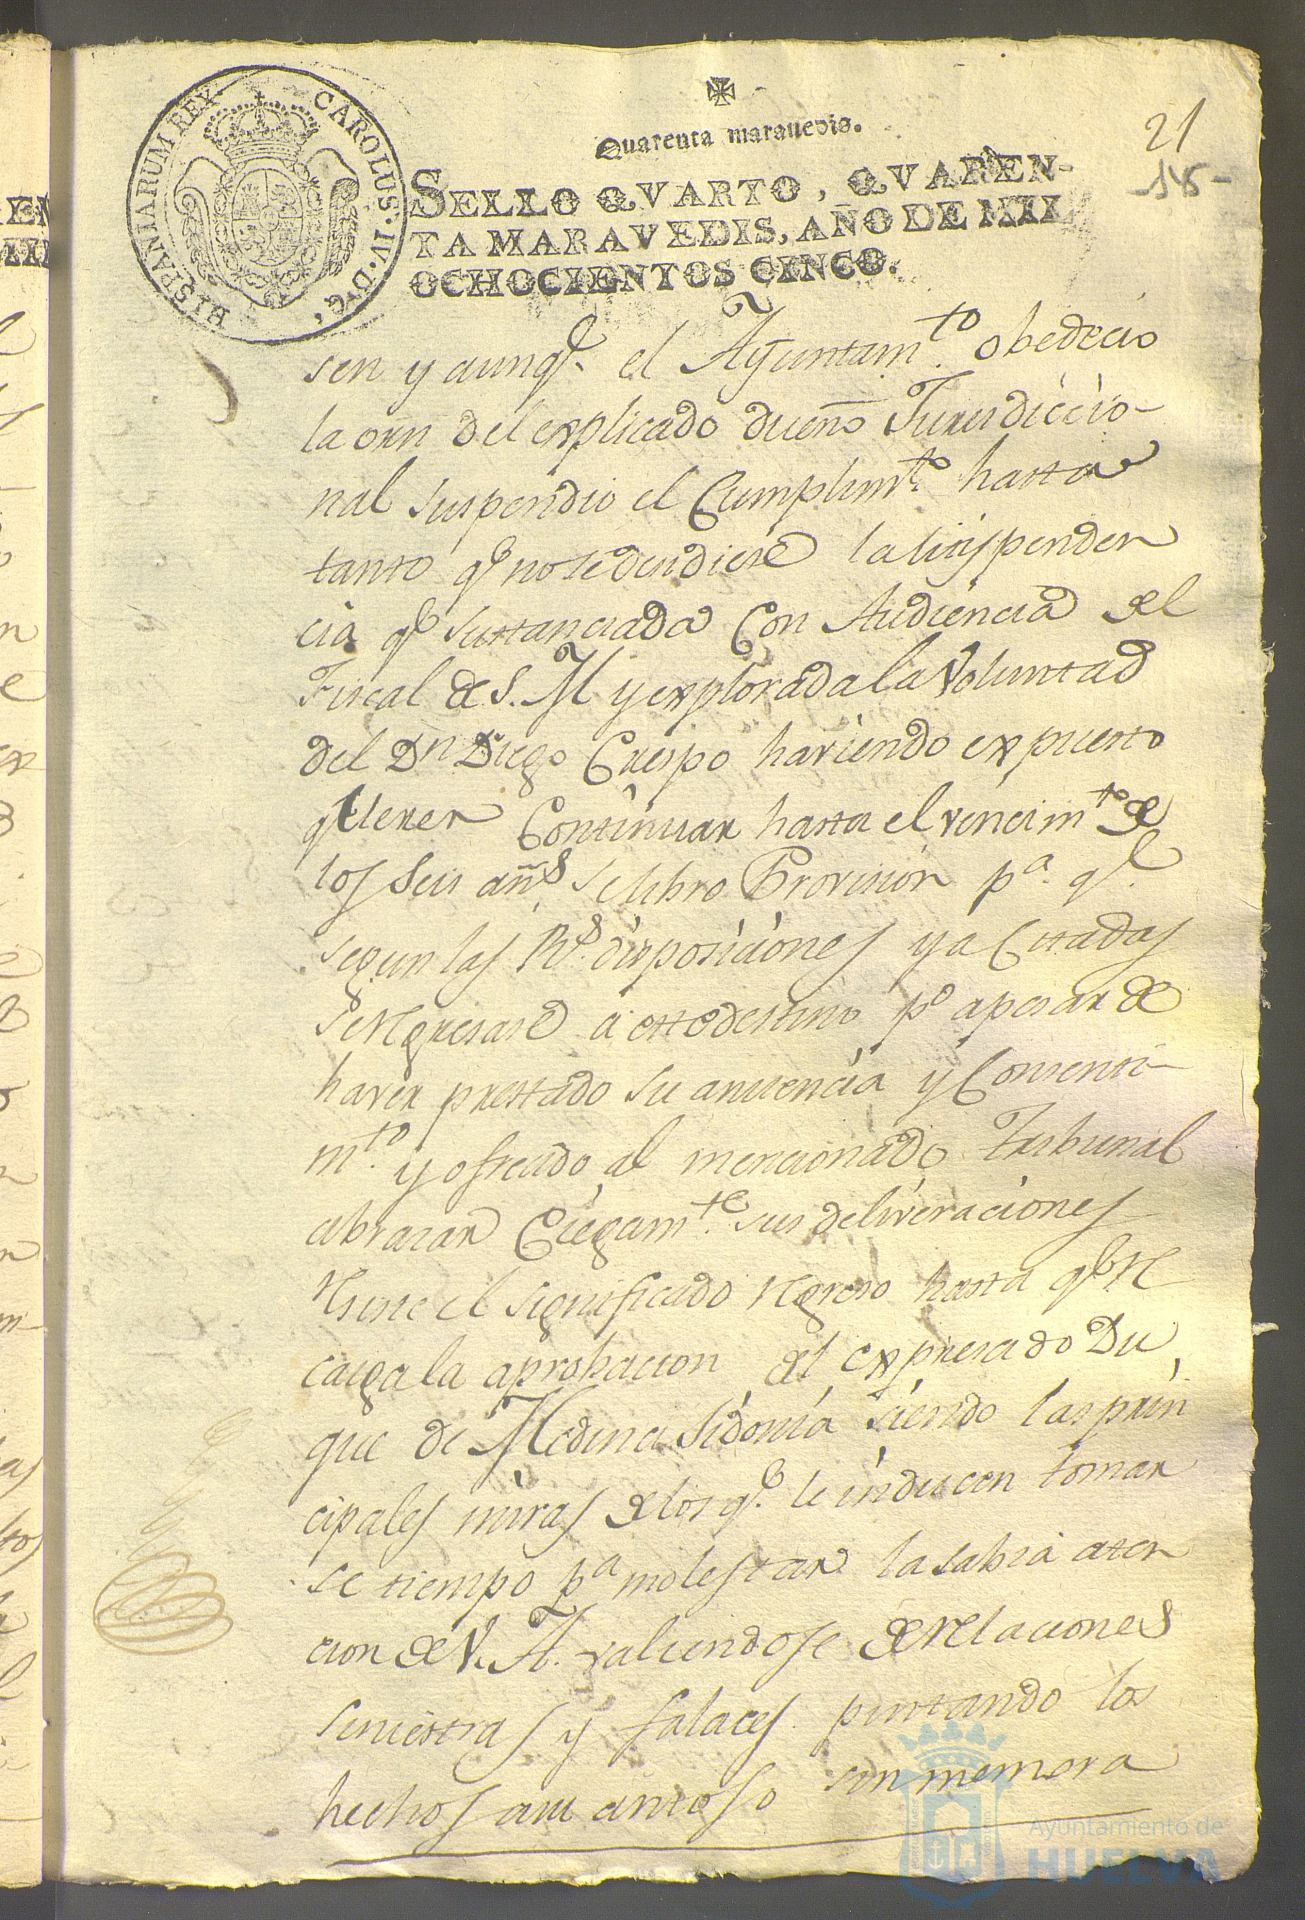 HISPANIARUM REX CAROLUS·IV·D·G·
Quarenta maravedis.
21
SELLO QVARTO, QVAREN-
TA MARAVEDIS, AÑO DE MIL
OCHOCIENTOS CINCO.
sen y aunq.e el Ayuntam.to obedecio
la orn del explicado dueño Jurisdiccio-
nal suspendio el Cumplim.to hasta
tanto q.e no se decidiese la litispenden
cia q.e sustanciada Con Audiencia del
Fiscal de S. M y explorada la Voluntad
del Dn Diego Crespo haviendo expuesto
querer Continuar hasta el vencim.to de
los Seis añ.s se libro Provision p.a q.e
segun las R.s disposiciones ya Citadas
se regresase a este destino p.o apesar de
haver prestado su anuencia y Consenti-
m.to y ofrecido al mencionado Tribunal
abrazar Ciegam.te sus deliveraciones
resiste el significado regreso hasta q.e re
caiga la aprobacion del expresado Du
que de Medina Sidonia siendo las prin
cipales miras de los q.e le inducen tomar
se tiempo p.a molestar la sabia aten
cion de V. A. valiendose de relaciones
siniestras y falaces pintando los
hechos a su antojo sin memora
Ayuntamiento de
HUELVA